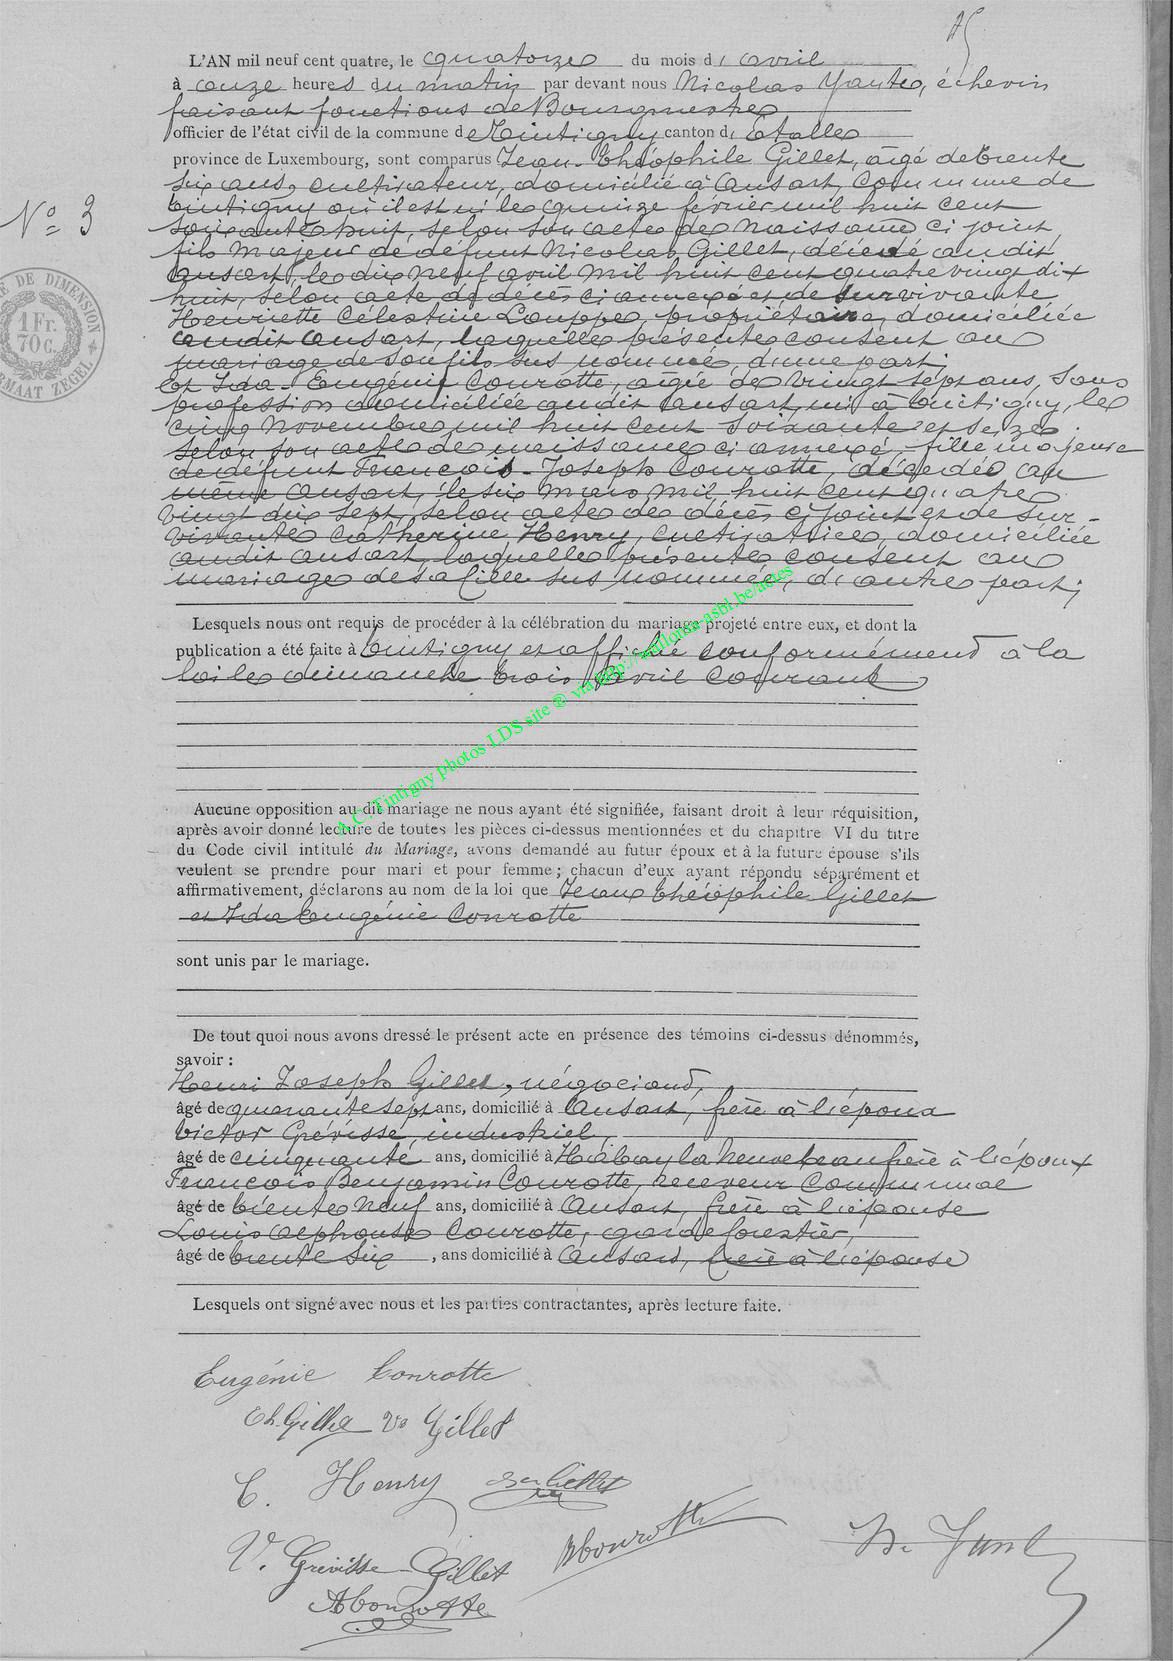 L'AN mil neuf cent quatre, le quatorze du mois d'avril
à onze heures du matin par devant nous Nicolas Yante, échevin
faisant fonctions de Bourgmestre
officier de l'état civil de la commune de Tintigny canton d'Etalle
province de Luxembourg, sont comparus Jean-Théophile Gillet, âgé de trente
six ans, cultivateur, domicilié à Ansart, Commune de
Tintigny où il est né le quinze février mil huit cent
soixante huit, selon son acte de naissance ci joint,
N° 3
fils majeur de défunt Nicolas Gillet, décédé au dit
Ansart, le dix neuf avril mil huit cent quatre vingt dix
huit, selon acte de décès ci annexé et de survivante
Henriette Célestine Louppe, propriétaire, domiciliée
audit Ansart, laquelle présente consent au
mariage de son fils sus nommé, d'une part;
Et Ida-Eugénie Conrotte, âgée de vingt sept ans, Sans
profession domiciliée audit Ansart, née à Tintigny, le
cinq Novembre mil huit cent Soixante et seize
selon son acte de naissance ci annexé, fille majeure
de défunt François-Joseph Conrotte, décédé au
même Ansart, le six mars mil huit cent quatre
vingt dix sept, selon acte de décès ci joint et de sur-
vivante Catherine Henry, cultivatrice, domiciliée
audit Ansart, laquelle présente consent au
mariage de sa fille sus nommée, d'autre part;
Lesquels nous ont requis de procéder à la célébration du mariage projeté entre eux, et dont la
publication a été faite à Tintigny et affiché conformément à la
loi le dimanche trois Avril courant
Aucune opposition au dit mariage ne nous ayant été signifiée, faisant droit à leur réquisition,
après avoir donné lecture de toutes les pièces ci-dessus mentionnées et du chapitre VI du titre
du Code civil intitulé du Mariage, avons demandé au futur époux et à la future épouse s'ils
veulent se prendre pour mari et pour femme; chacun d'eux ayant répondu séparément et
affirmativement, déclarons au nom de la loi que Jean Théophile Gillet
et Ida Eugénie Conrotte
sont unis par le mariage.
De tout quoi nous avons dressé le présent acte en présence des témoins ci-dessus dénommés,
savoir :
Henri Joseph Gillet, négociant,
âgé de quarante sept ans, domicilié à Ansart, frère à l'époux
Victor Grévisse, industriel,
âgé de cinquante ans, domicilié à Habay la Neuve beau frère à l'époux
François Benjamin Conrotte, receveur Communal
âgé de trente Neuf ans, domicilié à Ansart, frère à l'épouse
Louis Alphonse Conrotte, garde forestier,
âgé de trente six, ans domicilié à Ansart, frère à l'épouse
Lesquels ont signé avec nous et les parties contractantes, après lecture faite.
Eugénie Conrotte
Th. Gillet Ve Gillet
C. Henry
V. Grévisse-Gillet BConrotte
AConrotte
N. Yante
E DE DIMENSION
1 Fr.
70 c.
RMAAT ZEGEL
A.C. Tintigny photos LDS site ® via http://wallonia-asbl.be/actes